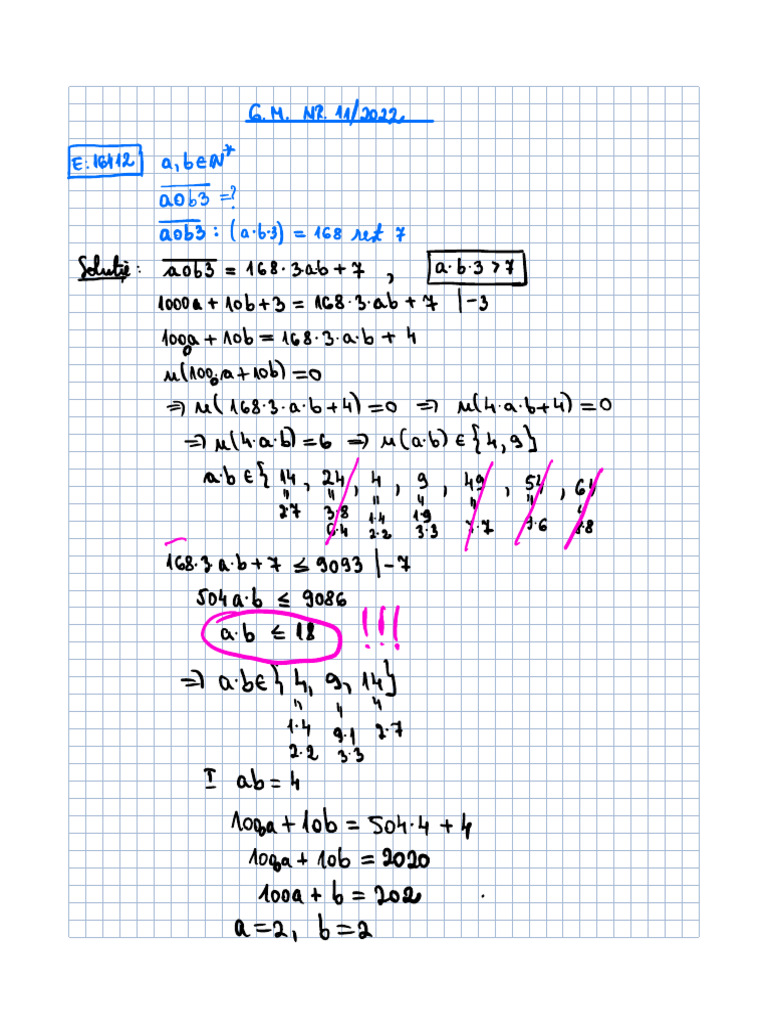 G.M. NR. 11/2022
E:16412 a,b∈ℕ*
a0b3 =?
a0b3 : (a·b·3) = 168 rest 7
Soluție: a0b3 = 168·3ab+7 , a·b·3 > 7
1000a + 10b + 3 = 168·3·ab + 7 |-3
1000a + 10b = 168·3·a·b + 4
u(1000a + 10b) = 0
⇒ u(168·3·a·b+4) = 0 ⇒ u(4·a·b+4) = 0
⇒ u(4·a·b) = 6 ⇒ u(a·b) ∈ {4,9}
a·b ∈ { 14 , 24 , 4 , 9 , 49 , 54 , 64
2·7 3·8 1·4 1·9 7·7 9·6 8·8
6·4 2·2 3·3
168·3a·b+7 ≤ 9093 |-7
504a·b ≤ 9086
a·b ≤ 18 !!!
⇒ a·b∈{4, 9, 14}
1·4 9·1 2·7
2·2 3·3
I ab = 4
1000a + 10b = 504·4 + 4
1000a + 10b = 2020
100a + b = 202
a = 2, b = 2